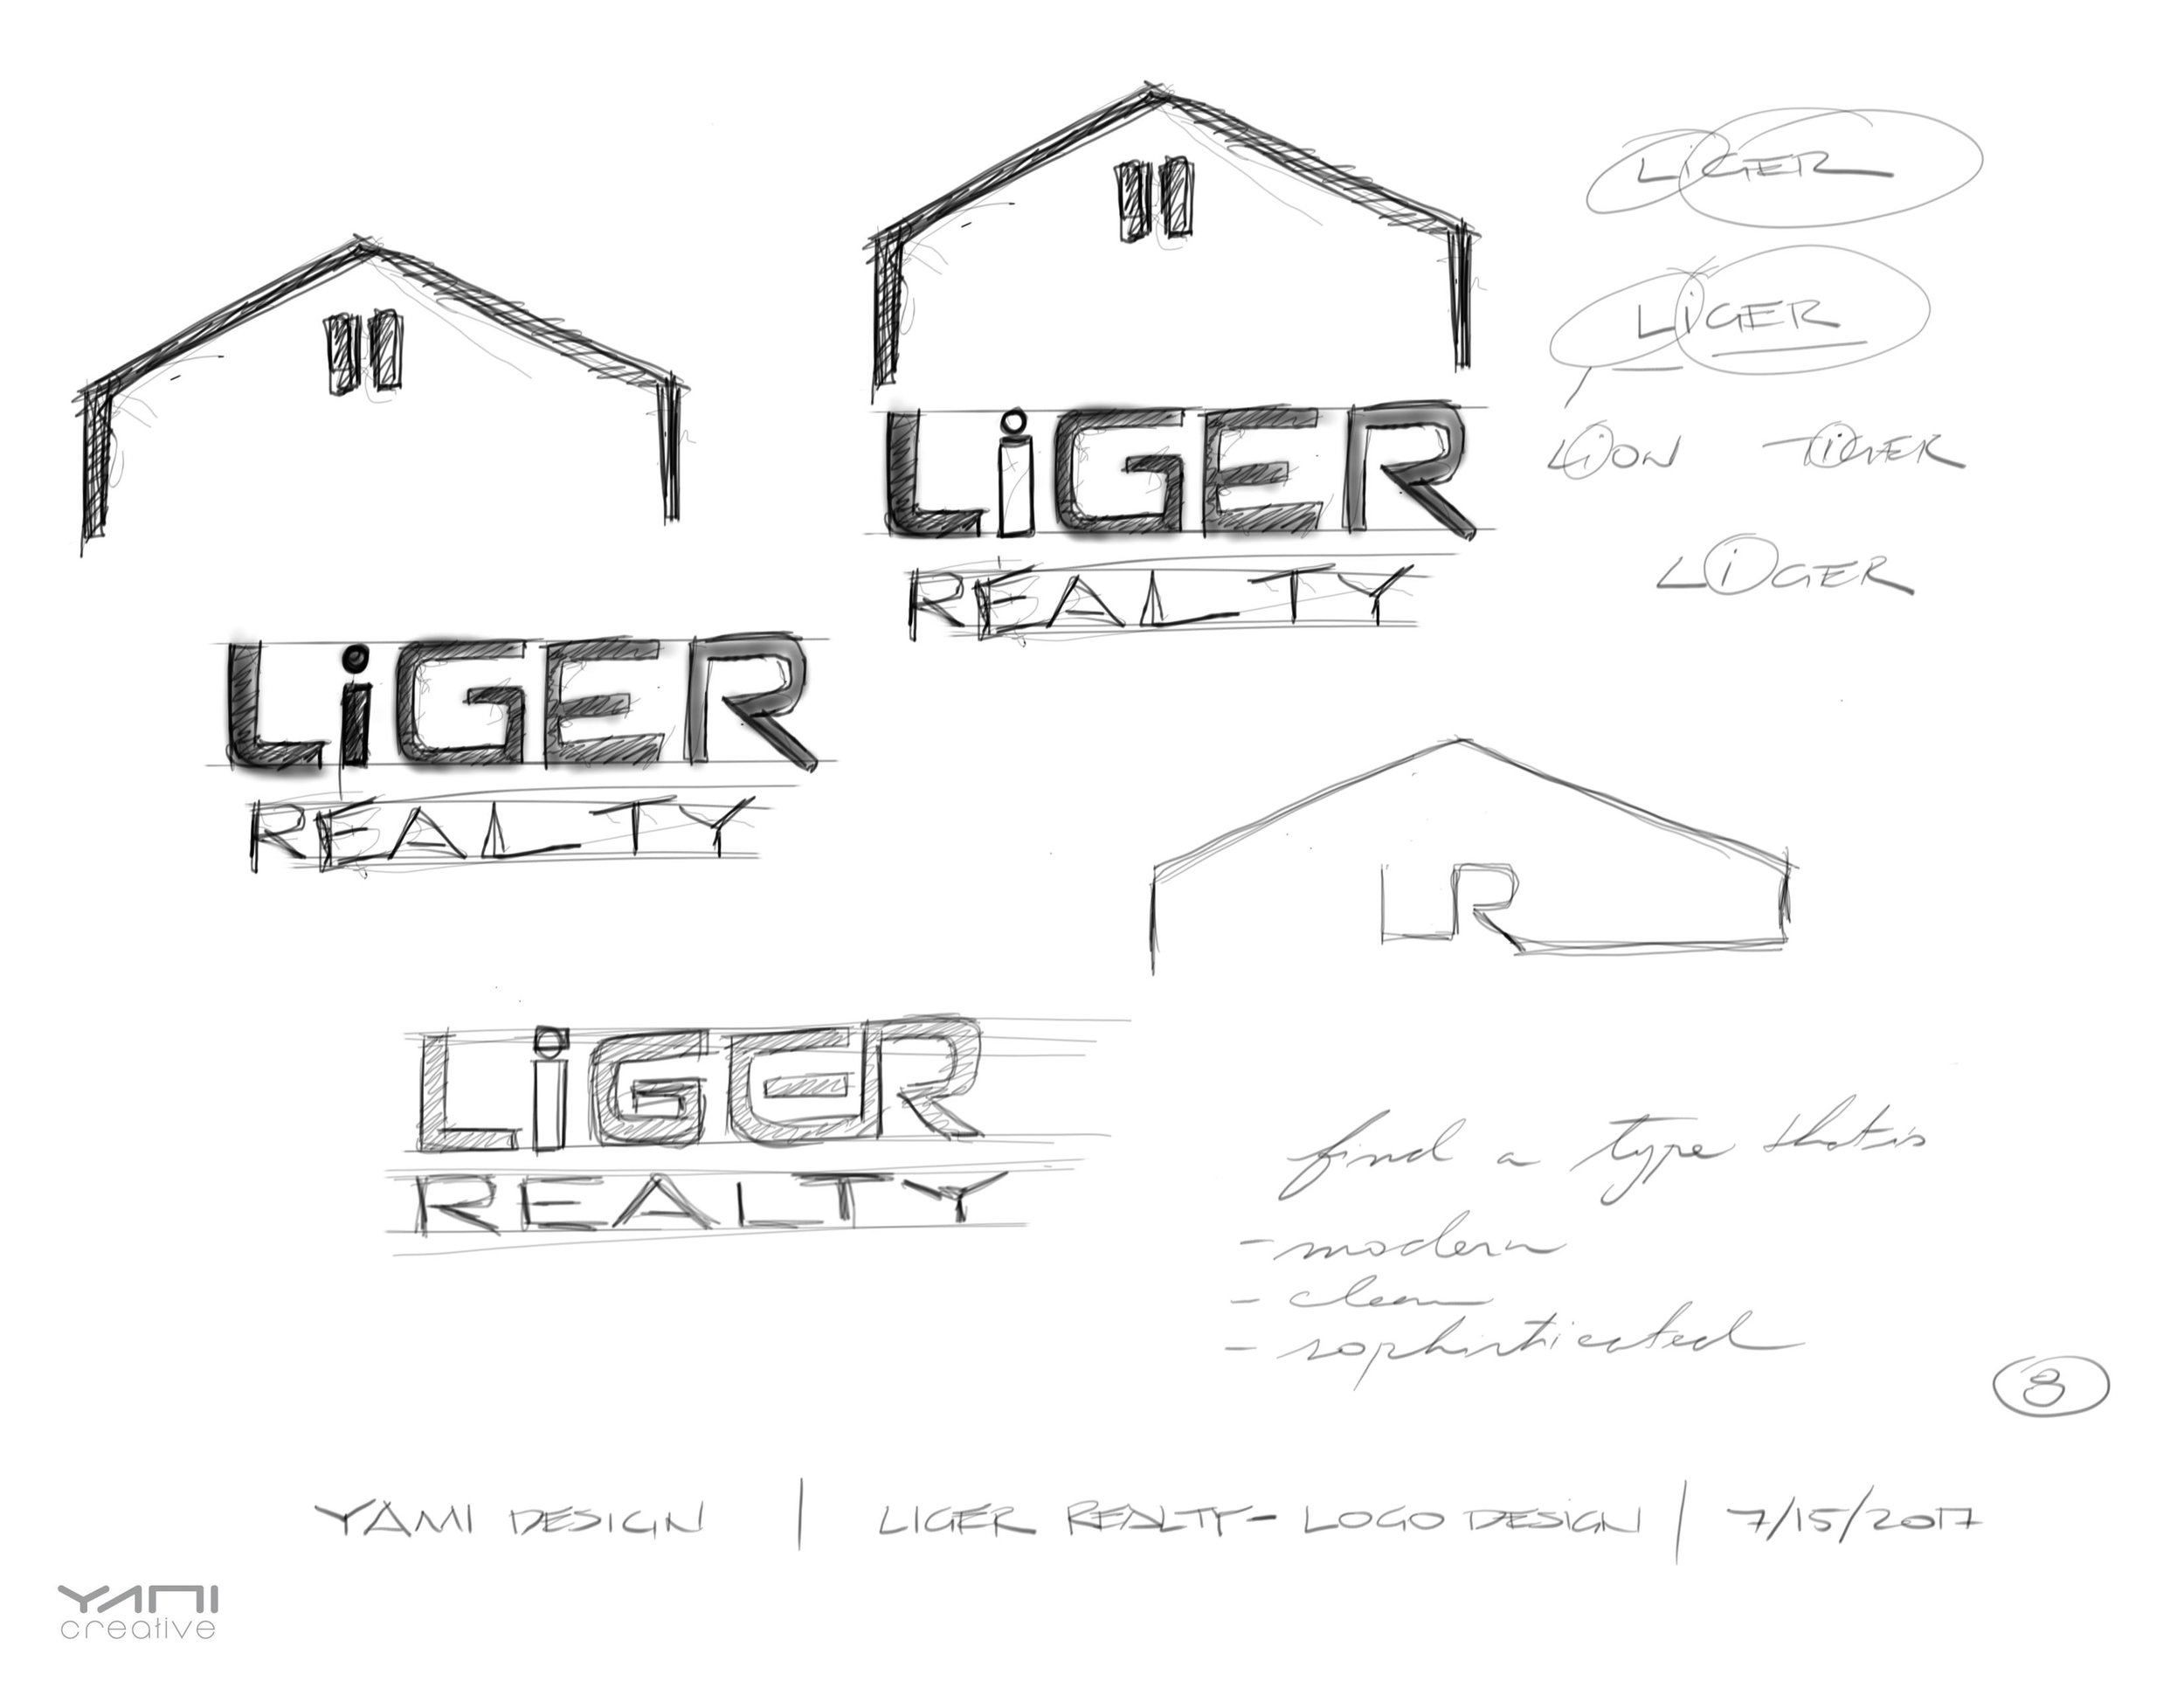 LiGER
LiGER
LiON TiGER
LiGER
LiGER
REALTY
LiGER
REALTY
LR
LiGER
REALTY
find a type that is
- modern
- clean
- sophisticated
8
YAMI DESIGN | LIGER REALTY - LOGO DESIGN | 7/15/2017
YAMI
creative